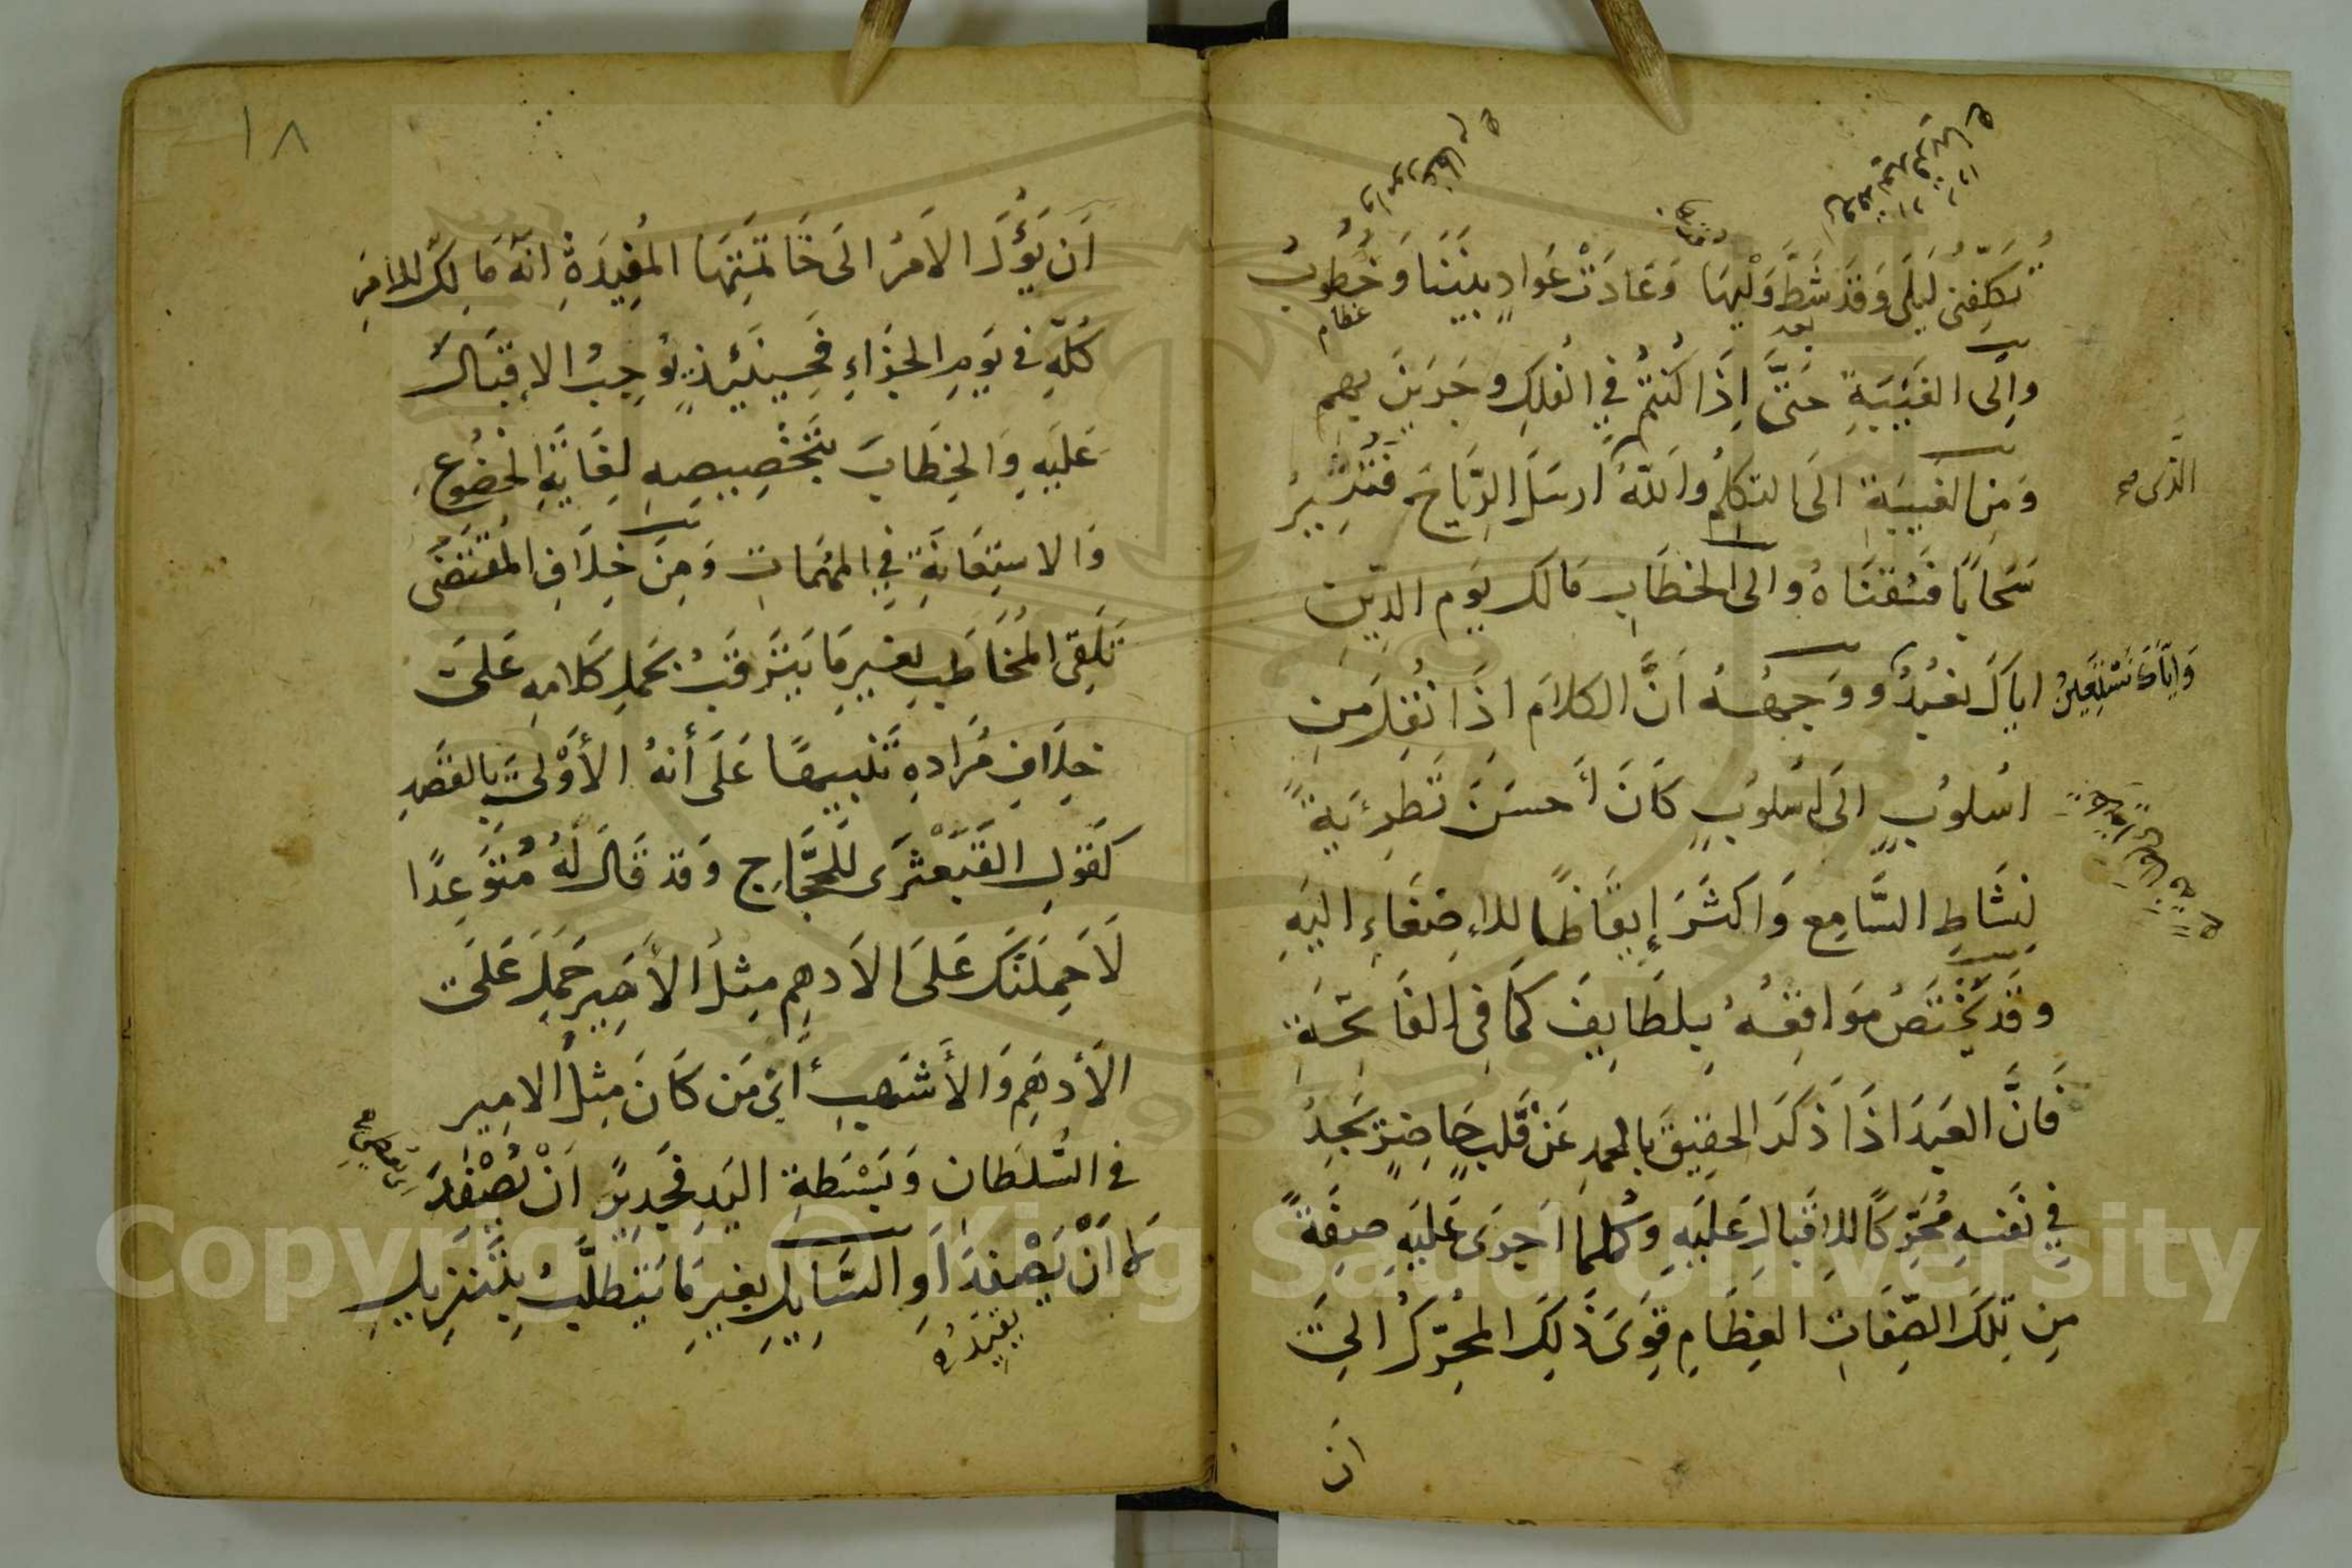 يُكَلِّفُنِي لَيْلَى وَقَدْ شَطَّ وَلْيُهَا وَعَادَتْ عَوَادٍ بَيْنَنَا وَخُطُوبُ
بعد
عظام
والى الغَيْبَةِ حَتَّى اِذَا كُنْتُمْ فِي الفُلكِ وجَرَيْنَ بهم
وَمِن الغَيبَةِ الَى التكلمُ واَللّهُ اَرسَلَ الرِّيَاحَ فَتُثِيرُ
الذى صح
سَحَابًا فَسُقنَاهُ والى الخطَابِ مَالك يَوم الدِّين
اياكَ نعبُدُ ووَجهُهُ اَنَّ الكلَامَ اذَا نُقِلَ مِن
وَاِيَّاكَ نَسْتَعِينُ
اسُلوُبٍ الَى اُسْلوُبٍ كَانَ أَحسَنَ تَطرِيَةً
لِنَشَاطِ السَّامِع وَاكثَرَ إِيقَاظًا للاِصْغَاءِ اليَهِ
وقَدْ تَخْتَصُ مَوَاقِعُهُ بِلطَايِفَ كمَا فِى الفَاتحَةِ
فَانَّ العَبدَ اذَا ذَكَرَ الحقِيقَ بالحمدِ عَنْ قَلبٍ حَاضِرٍ يَجِدُ
فِي نَفسِهِ مُحَرِّكًا للاِقبَالِ عَليَهِ وَكُلمَا اَجرَى عَليَهِ صِفَةً
مِن تِلكَ الصِّفَاتِ العِظَامِ قَوِىَ ذَلِكَ المُحَرِّكُ الىَ
ان
١٨
اَن يَؤُلَ الاَمرُ الَى خَاتمَتِهَا المُفِيدَةِ انّهُ مَالِكُ للاَمرِ
كُلّهِ فى يَومِ الجزَاءِ فَحِينَئِذٍ يُوجِبُ الاِقبَالَ
عَليَهِ وَالخِطَابَ بتَخْصِيصِهِ بغَايَةِ الخضُوعِ
وَالاستِعَانَةِ فِي المهُمَاتِ وَمِنَ خِلَافِ المُقتَضَى
تَلَقّى المُخَاطَبِ بغَيرِ مَا يَتَرقَبُ بحَملِ كَلامِهِ عَلىَ
خلَافِ مُرَادِهِ تَنْبيهًا عَلىَ أَنهُ الأَوْلىَ بِالقَصدِ
كَقَولِ القَبَعْثَرَى لِلحَجَّاجِ وَقد قَالَ لَهُ مُتَوَعِدًا
لَاَحمِلنَّكَ عَلىَ الاَدهِم مِثلُ الأَمِيرِ حَمَلَ عَلىَ
الأَدهَمِ وَالأَشهَبِ أَىْ مَن كَانَ مِثلَ الامِيرِ
فى السُّلطَانِ وَبَسْطَةِ اليَدِ فجَدِيرٌ اَنْ يُصْفِدَ
لَا اَنْ يَصْفِدَ اَوِ السَّايِلِ بغَيرِ مَا يَتطَلَّبُ بِتَنزِيلِ
يقيّدُه